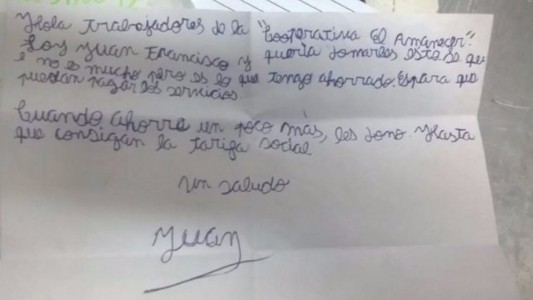 Hola trabajadores de la "Cooperativa El Amanecer".
Soy Juan Francisco y queria donarles esto se qu
e no es mucho pero es lo que tengo ahorrado. Es para que
puedan pagar los servicios
Cuando ahorre un poco más, les dono. Hasta
que consigan la tarifa social
Un saludo
Juan